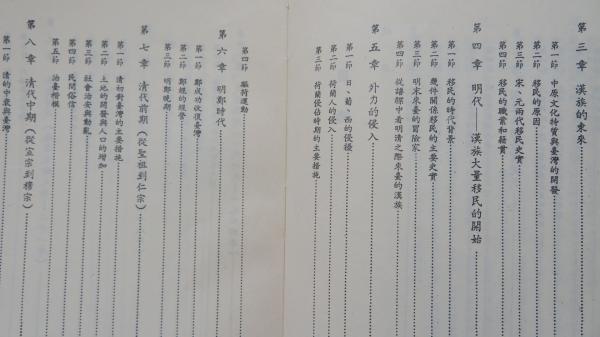 第三章 漢族的東來
第一節 中原文化特質與臺灣的開發
第二節 移民的原因
第三節 宋、元兩代移民史實
第四節 移民的職業和籍貫
第四章 明代——漢族大量移民的開始
第一節 移民的時代背景
第二節 幾件關係移民的主要史實
第三節 明末來臺的冒險家
第四節 從譜牒中看明清之際來臺的漢族
第五章 外力的侵入
第一節 日、葡、西的侵擾
第二節 荷蘭人的侵入
第三節 荷蘭侵佔時期的主要措施
第四節 驅荷運動
第六章 明鄭時代
第一節 鄭成功收復臺灣
第二節 鄭經的經營
第三節 明鄭晚期
第七章 清代前期（從聖祖到仁宗）
第一節 清初對臺灣的主要措施
第二節 土地的開發與人口的增加
第三節 社會治安與動亂
第四節 民間俗信
第五節 治臺楷模
第八章 清代中期（從宣宗到穆宗）
第一節 清的中衰與臺灣